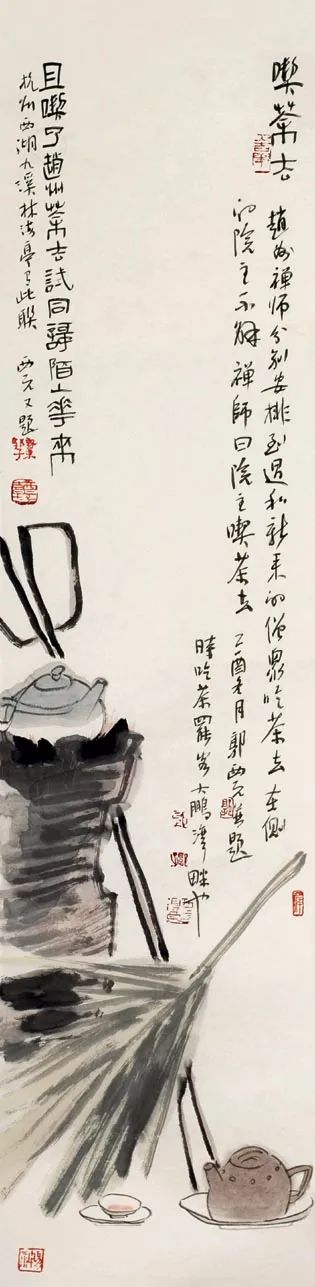 喫茶去
趙州禅师分别安排到过和新来的僧众吃茶去在侧
的院主不解禅師曰院主喫茶去 乙酉冬月郭西元并题
時吃茶罷客大鵬灣畔也
且喫了趙州茶去試同歸陌上花來
杭州西湖九溪林海亭有此联 西元又题